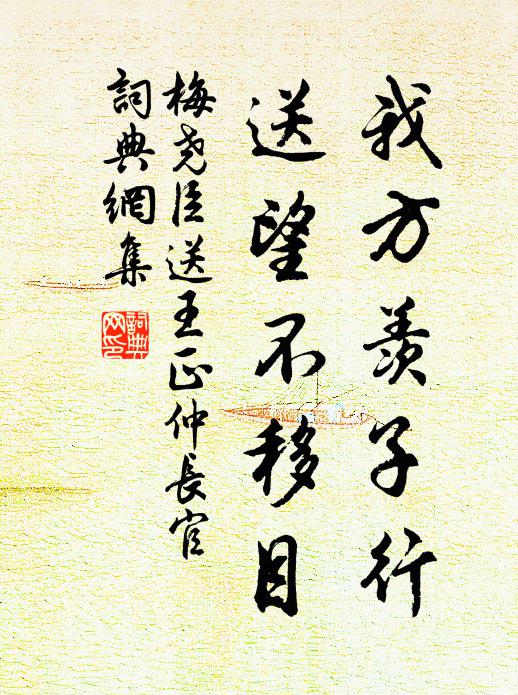 我方羨子行
送望不移目
梅堯臣送王正仲長官
詞典網集
詞典网印